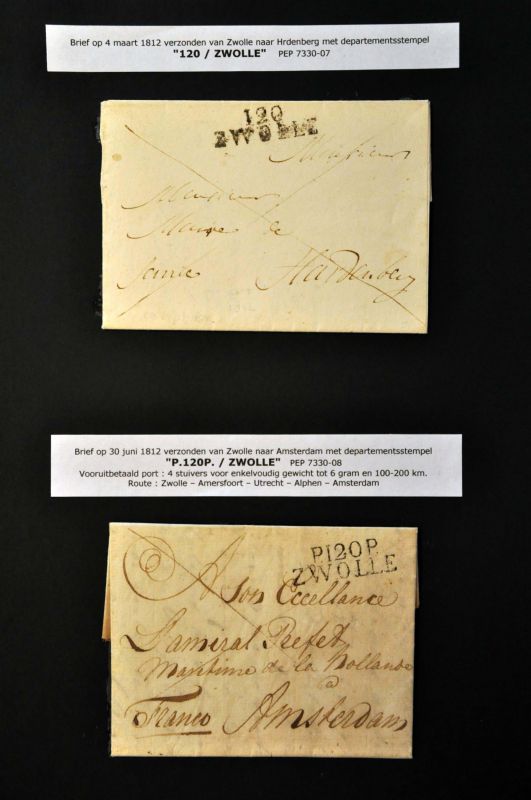 Brief op 4 maart 1812 verzonden van Zwolle naar Hrdenberg met departementsstempel
"120 / ZWOLLE" PEP 7330-07
120
ZWOLLE
Monsieur
Monsieur
Maire de
Hardenberg
Brief op 30 juni 1812 verzonden van Zwolle naar Amsterdam met departementsstempel
"P.120P. / ZWOLLE" PEP 7330-08
Vooruitbetaald port : 4 stuivers voor enkelvoudig gewicht tot 6 gram en 100-200 km.
Route : Zwolle – Amersfoort – Utrecht – Alphen – Amsterdam
P120P
ZWOLLE
A Son Eccellance
L'amiral Prefet
Maritime de la Hollande
a
Franco Amsterdam